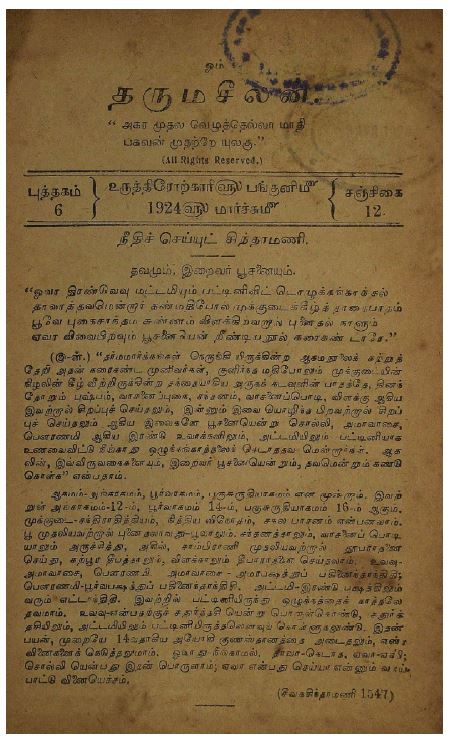 ஓம்
தருமசீலன்
“ அகர முதல வெழுத்தெல்லா மாதி
பகவன் முதற்றே யுலகு.”
(All Rights Reserved.)
புத்தகம்
6
உருத்திரோற்காரி௵ பங்குனிமீ
1924௵ மார்ச்சுமீ
சஞ்சிகை
12.
நீதிச் செய்யுட் சிந்தாமணி.
தவமும், இறைவர் பூசனையும்.
“ஓவா திரண்டுவவு மட்டமியும் பட்டினிவிட் டொழுக்கங்காத்தல்
தாவாத்தவமென்றார் தண்மதிபோல முக்குடைக்கீழ்த் தாதைபாதம்
பூவே புகைசாந்தஞ் சுண்ணம் விளக்கிவற்றாற் புனைதல் நாளும்
ஏவா விவைபிறவும் பூசனையென் றீண்டியநூல் கரைகண் டாரே.”
(இ-ள்.) “தர்மமார்க்கங்கள் நெருங்கி யிருக்கின்ற ஆகமநூலைக் கற்றுத்
தேறி அதன் கரைகண்ட முனிவர்கள், குளிர்ந்த மதிபோலும் முக்குடையின்
கீழலின் கீழ் வீற்றிருக்கின்ற தந்தையாகிய அருகக் கடவுளின் பாதத்தே, தினந்
தோறும் புஷ்பம், வாசனைப்புகை, சந்தனம், வாசனைப்பொடி, விளக்கு ஆகிய
இவற்றால் சிறப்புச் செய்தலும், இன்னும் இவை யொழிந்த பிறவற்றால் சிறப்
புச் செய்தலும் ஆகிய இவைகளே பூசனையென்று சொல்லி, அமாவாசை,
பௌரணமி ஆகிய இரண்டு உவாக்களிலும், அட்டமியிலும் பட்டினியாக
உணவைவிட்டு நீங்காது ஒழுக்கங்காத்தலைக் கெடாததவ மென்றார்கள். ஆத
லின், இவ்விருவகைகளையும், இறைவர் பூசனையென்றும், தவமென்றும் கண்டு
கொள்க” என்பதாம்.
ஆகமம்-அங்காகமம், பூர்வாகமம், பகுசுருதியாகமம் என மூன்றாம். இவற்
றுள் அங்காகமம்-12-ம், பூர்வாகமம் 14-ம், பகுசுருதியாகமம் 16-ம் ஆகும்.
முக்குடை-சந்திராதித்தியம், நித்திய விநோதம், சகல பாசனம் என்பனவாம்.
பூ முதலியவற்றால் புனைதலாவது-பூவாலும், சந்தனத்தாலும், வாசனைப் பொடி
யாலும் அருச்சித்து, அகில், சாம்பிராணி முதலியவற்றால் தூபாராதனை
செய்து, கற்பூர தீபத்தாலும், விளக்காலும் தீபாராதனை செய்தலாம். உவவு-
அமாவாசை, பௌரணமி. அமாவாசை-அமரபக்ஷத்துப் பதினைந்தாந்திதி;
பௌரணமி-பூர்வபக்ஷத்துப் பதினைந்தாந்திதி. அட்டமி-இரண்டு பக்ஷத்திலும்
வரும் எட்டாந்திதி. இவற்றில் பட்டினியிருந்து ஒழுக்கத்தைக் காத்தலே
தவமாம். உவவு-என்பதற்குச் சதுர்த்தசி யென்று பொருள்கொண்டு, சதுர்த்
தசியிலும், அட்டமியிலும் பட்டினியிருத்தலெனவுங் கொள்ளுதலுண்டு. இதன்
பயன், முறையே 14வதாகிய அயோகி குணஸ்தானத்தை அடைதலும், எண்
வினைகளைக் கெடுத்தலுமாம். ஓவாது-நீங்காமல். தாவா-கெடாத. ஏவா-ஏவி;
சொல்லி யென்பது இதன் பொருளாம்; ஏவா என்பது செய்யா என்னும் வாய்
பாட்டு வினையெச்சம்.
(சீவகசிந்தாமணி 1547)